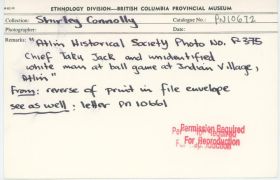 ETHNOLOGY DIVISION—BRITISH COLUMBIA PROVINCIAL MUSEUM
Collection: Shirley Connolly Catalogue No.: PN10672
Photographer: Date:
Remarks: "Atlin Historical Society Photo No. P375
Chief Taku Jack and unidentified
white man at ball game at Indian Village,
Atlin"
From: reverse of print in file envelope
see as well: letter PN 10661
Permission Required
For Reproduction